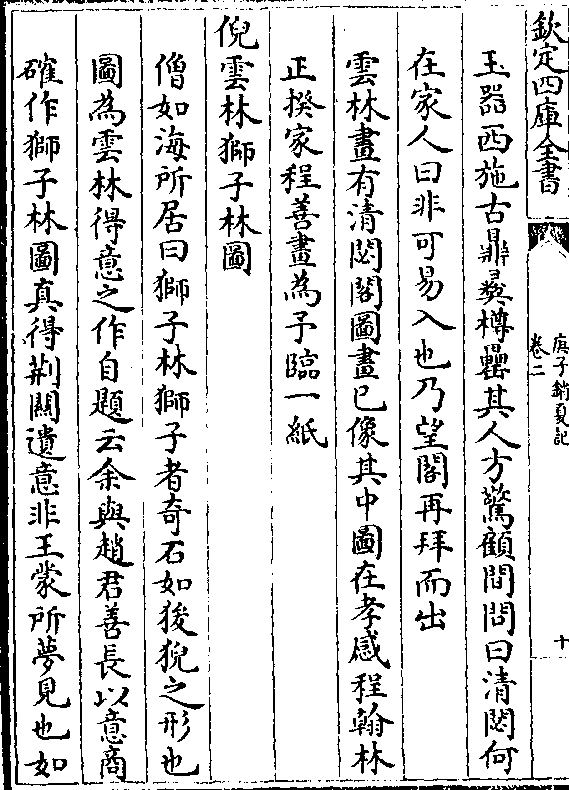 欽定四庫全書
庚子銷夏記
卷二
十
玉器西施古鼎彜樽罍其人方驚顧間問曰清閟何
在家人曰非可易入也乃望閣再拜而出
雲林畫有清閟閣圖畫已像其中圖在孝感程翰林
正揆家程善畫為予臨一紙
倪雲林獅子林圖
僧如海所居曰獅子林獅子者奇石如狻猊之形也
圖為雲林得意之作自題云余與趙君善長以意商
確作獅子林圖真得荆關遺意非王蒙所夢見也如